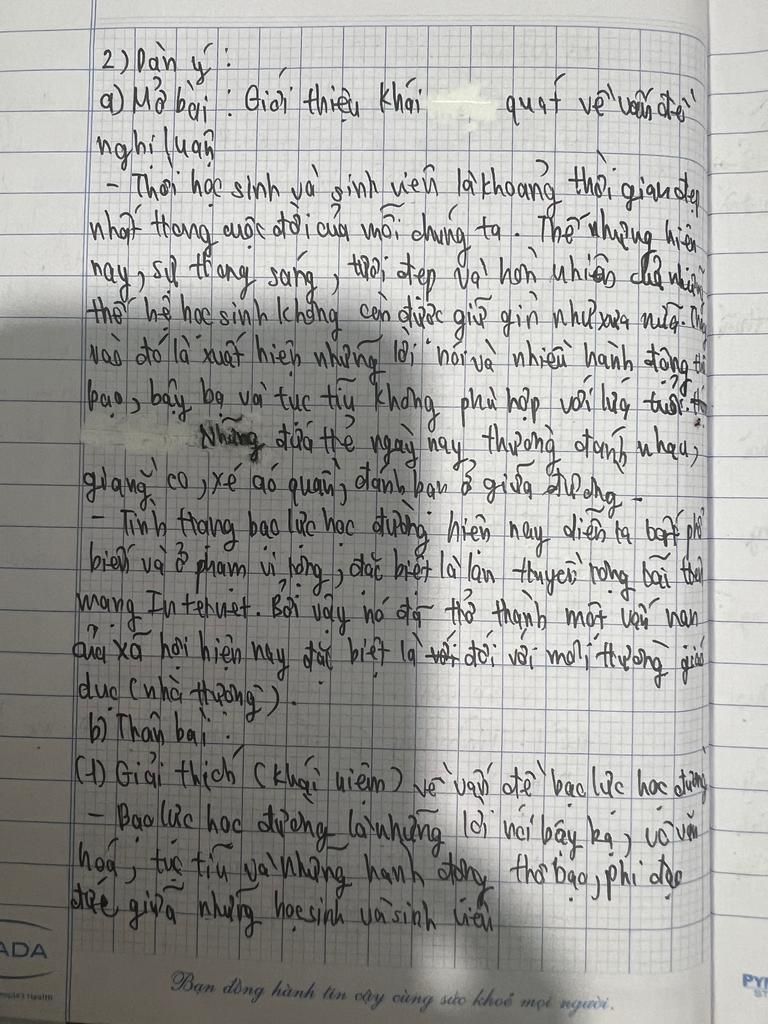 2) Dàn ý :
a) Mở bài : Giới thiệu khái quát về vấn đề
nghị luận
- Thời học sinh và sinh viên là khoảng thời gian đẹp
nhất trong cuộc đời của mỗi chúng ta. Thế nhưng hiện
nay, sự trong sáng, tươi đẹp và hồn nhiên của những
thế hệ học sinh không còn được giữ gìn như xưa nữa.
vào đó là xuất hiện những lời nói và nhiều hành động
bạo, bậy bạ và tục tĩu không phù hợp với lứa tuổi.
Những đứa trẻ ngày nay thường đánh nhau,
giằng co, xé áo quần, đánh bạn ở giữa đường.
- Tình trạng bạo lực học đường hiện nay diễn ra phổ
biến và ở phạm vi rộng, đặc biệt là lan truyền rộng rãi
mạng Internet. Bởi vậy nó đã trở thành một vấn nạn
của xã hội hiện nay đặc biệt là đối với môi trường giáo
dục (nhà trường).
b) Thân bài :
(1) Giải thích (khái niệm) về vấn đề bạo lực học đường
- Bạo lực học đường là những lời nói bậy bạ, vô văn
hoá, tục tĩu và những hành động thô bạo, phi đạo
đức giữa những học sinh và sinh viên
ADA
Bạn đồng hành tin cậy cùng sức khoẻ mọi người.